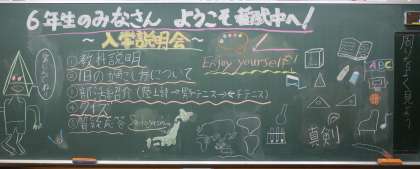 6年生のみなさん ようこそ 中へ!
~入学説明会~
Enjoy yourself!
① 教科説明
② 1日の過ごし方について
③ 部活紹介(陸上→男子テニス→女子テニス)
④ クイズ
⑤ 質疑応答
ABC
真剣
周りをよく見よう